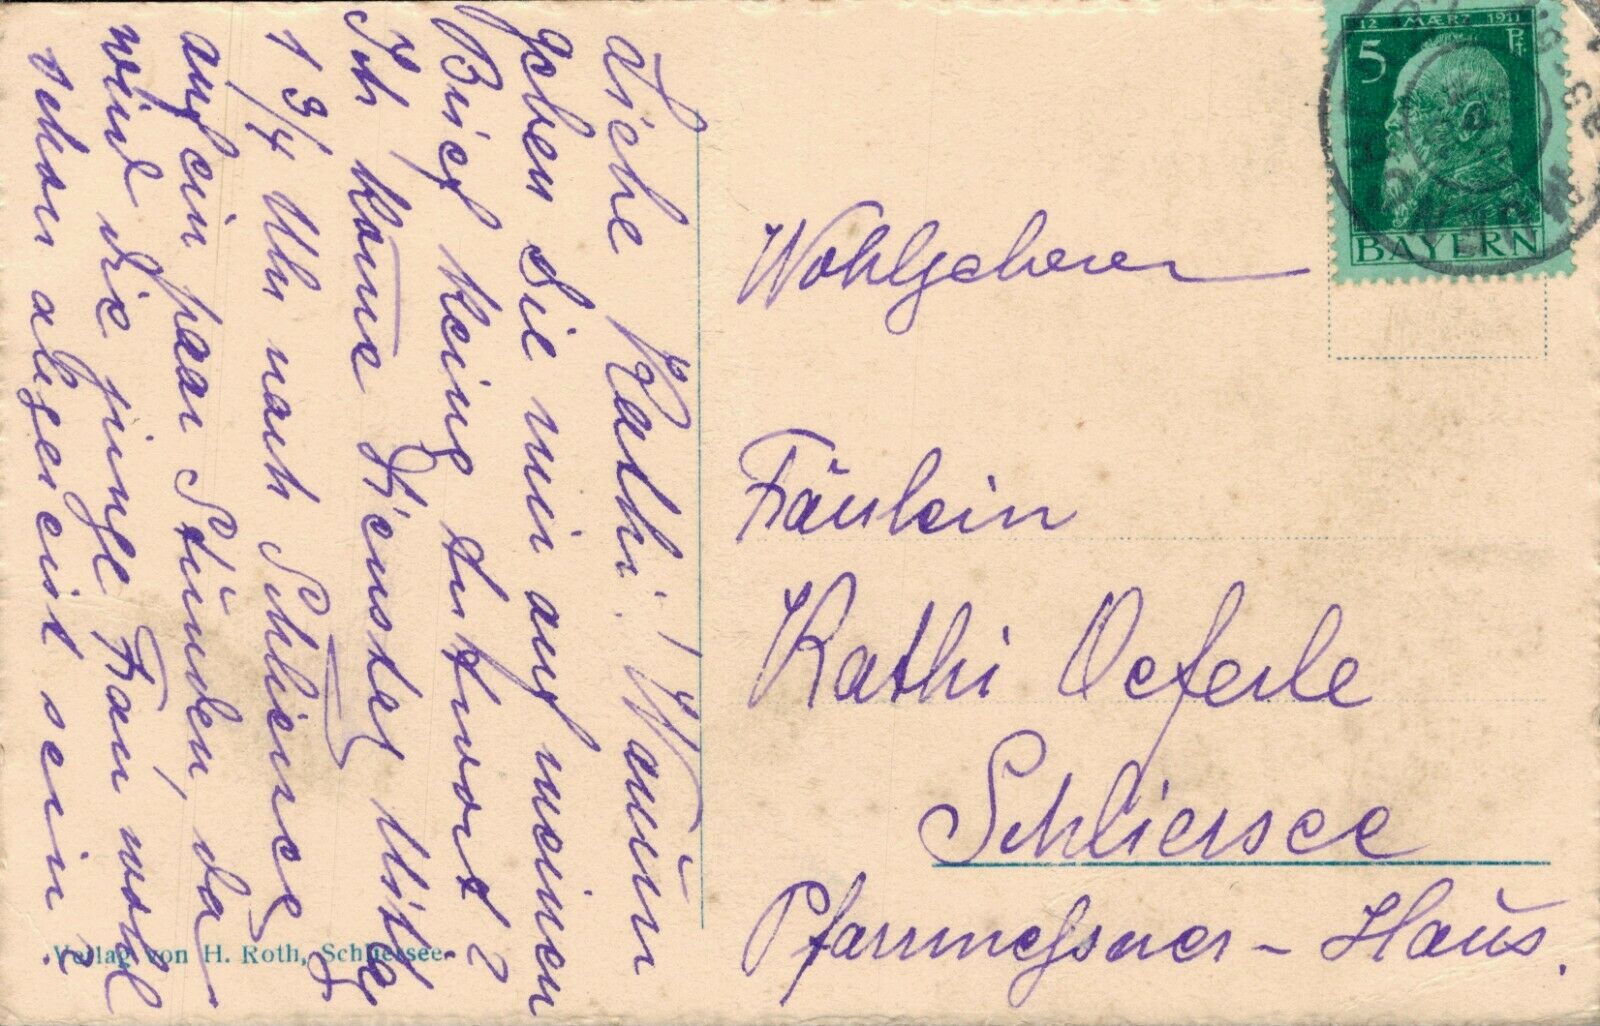 Liebe Kathi! Warum
geben Sie mir auf meinen
Brief keine Antwort?
Ich kome Dienstag Mittag
1 3/4 Uhr nach Schliersee
auf ein paar Stunden, da
wird die junge Frau wohl
schon abgereist sein?
Verlag von H. Roth, Schliersee.
12 MÆRZ 1911
5 Pf.
BAYERN
Wohlgeboren
Fräulein
Kathi Oeferle
Schliersee
Pfarrmessner-Haus.